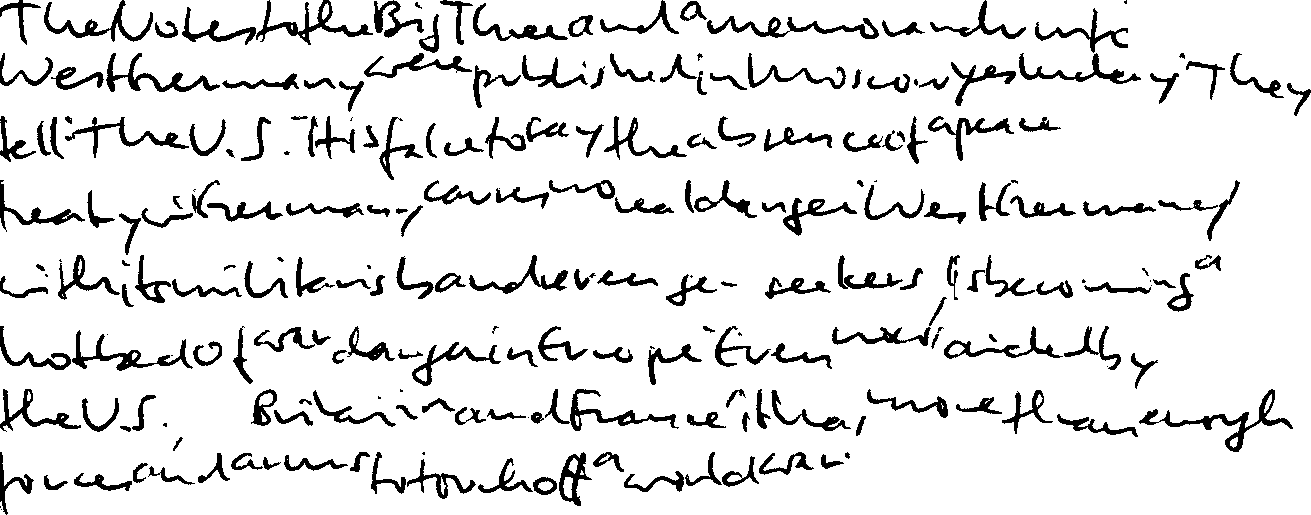 The Notes to the Big Three and a memorandum to
West Germany were published in Moscow yesterday. They
tell: The U.S. It is false to say the absence of a peace
treaty with Germany causes no real danger: West Germany
with its militarists and revenge- seekers, is becoming a
hotbed of war danger in Europe: Even now, aided by
the U.S., Britain and France, it has more than enough
forces and arms to touch off a world war.